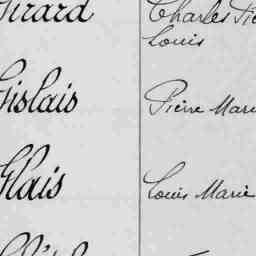 Girard Charles Pie
Louis
Gislais Pierre Marie
Glais Louis Marie